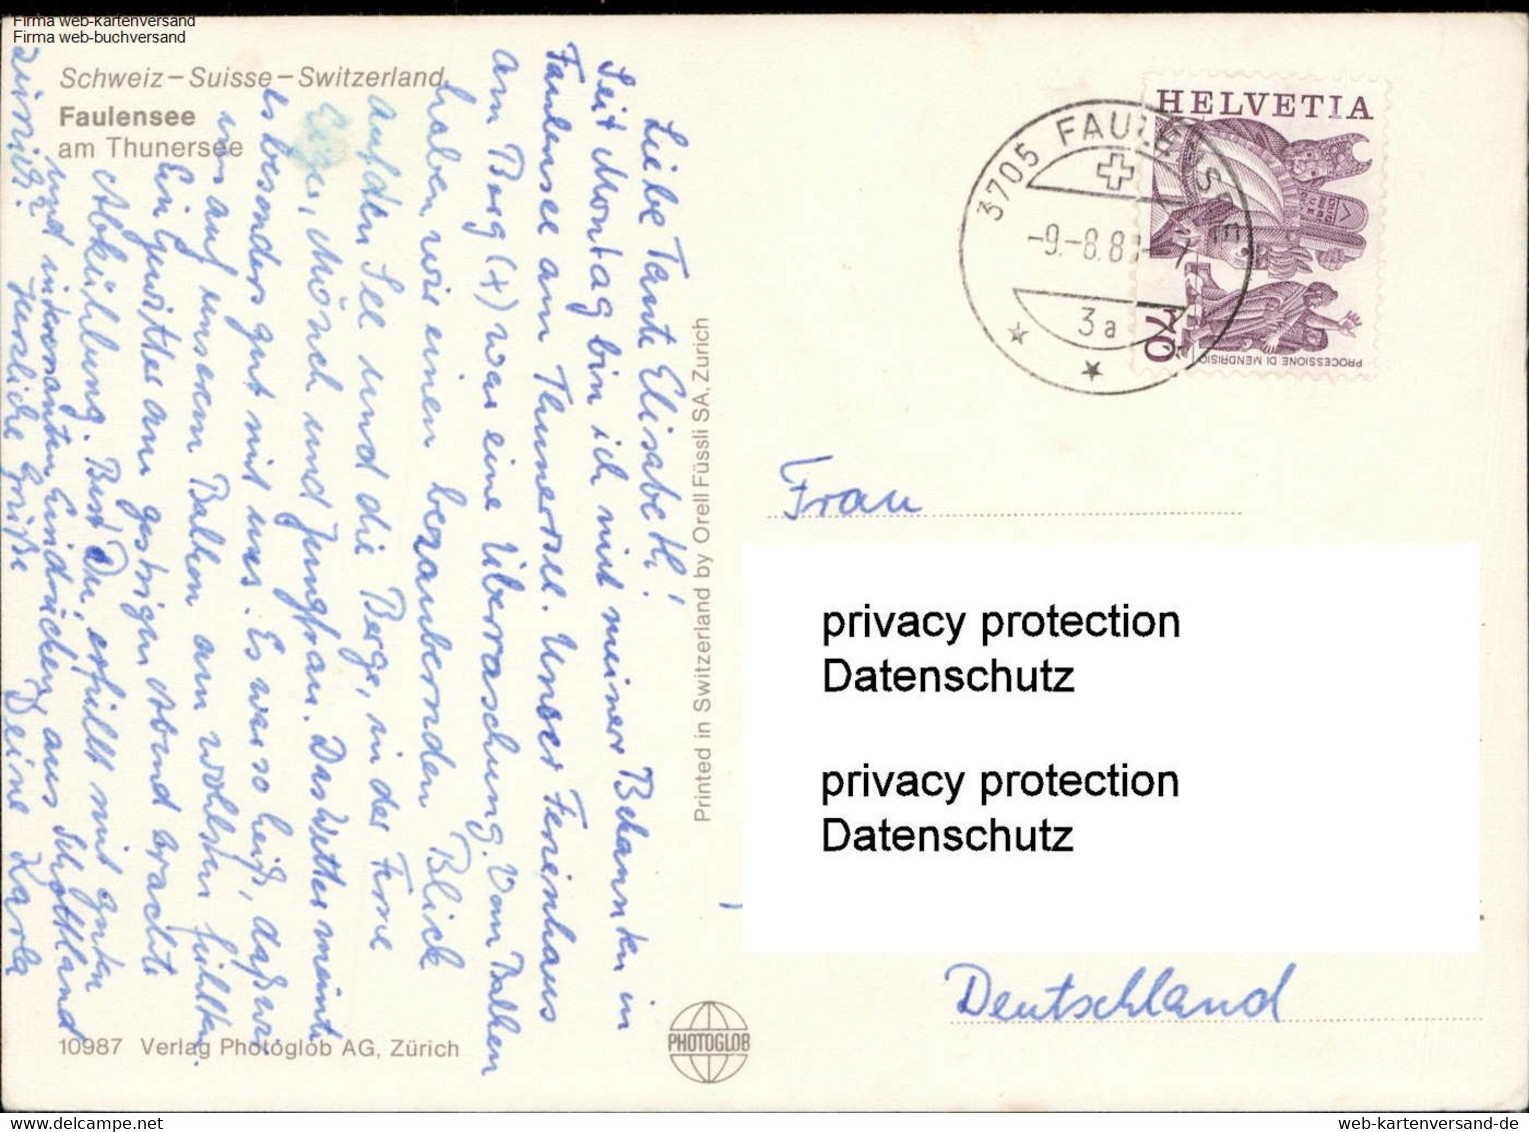 Firma web-kartenversand
Firma web-buchversand
Schweiz–Suisse–Switzerland
Faulensee
am Thunersee
Liebe Tante Elisabeth!
Seit Montag bin ich mit meinen Bekannten in
Faulensee am Thunersee. Unser Ferienhaus
am Berg (+) war eine Überraschung. Vom Balkon
haben wir einen bezaubernden Blick
auf den See und die Berge, in der Ferne
Eiger, Mönch und Jungfrau. Das Wetter meinte
es besonders gut mit uns. Es war so heiß, daß wir
uns auf unserem Balkon am wohlsten fühlten.
Ein Gewitter am gestrigen Abend brachte
Abkühlung. Bist Du erfüllt mit guten
und interessanten Eindrücken, aus Schottland
zurück? Herzliche Grüße Deine Karla
10987 Verlag Photoglob AG, Zürich
Printed in Switzerland by Orell Füssli SA, Zurich
PHOTOGLOB
3705 FAULENSEE
-9.-8.8
3a
HELVETIA
70
PROCESSIONE DI MENDRISIO
Frau
privacy protection
Datenschutz
privacy protection
Datenschutz
Deutschland
web-kartenversand-de